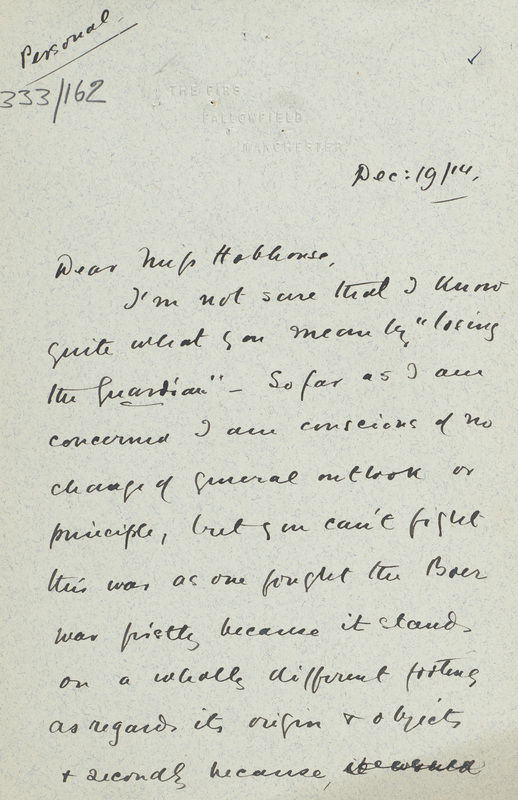 Personal.
333/162
THE FIRS,
FALLOWFIELD,
MANCHESTER.
Dec: 19/14.
Dear Miss Hobhouse,
I'm not sure that I know
quite what you mean by "losing
the Guardian" – So far as I am
concerned I am conscious of no
change of general outlook or
principle, but you can't fight
this war as one fought the Boer
war firstly because it stands
on a wholly different footing
as regards its origin & objects
& secondly because, it would